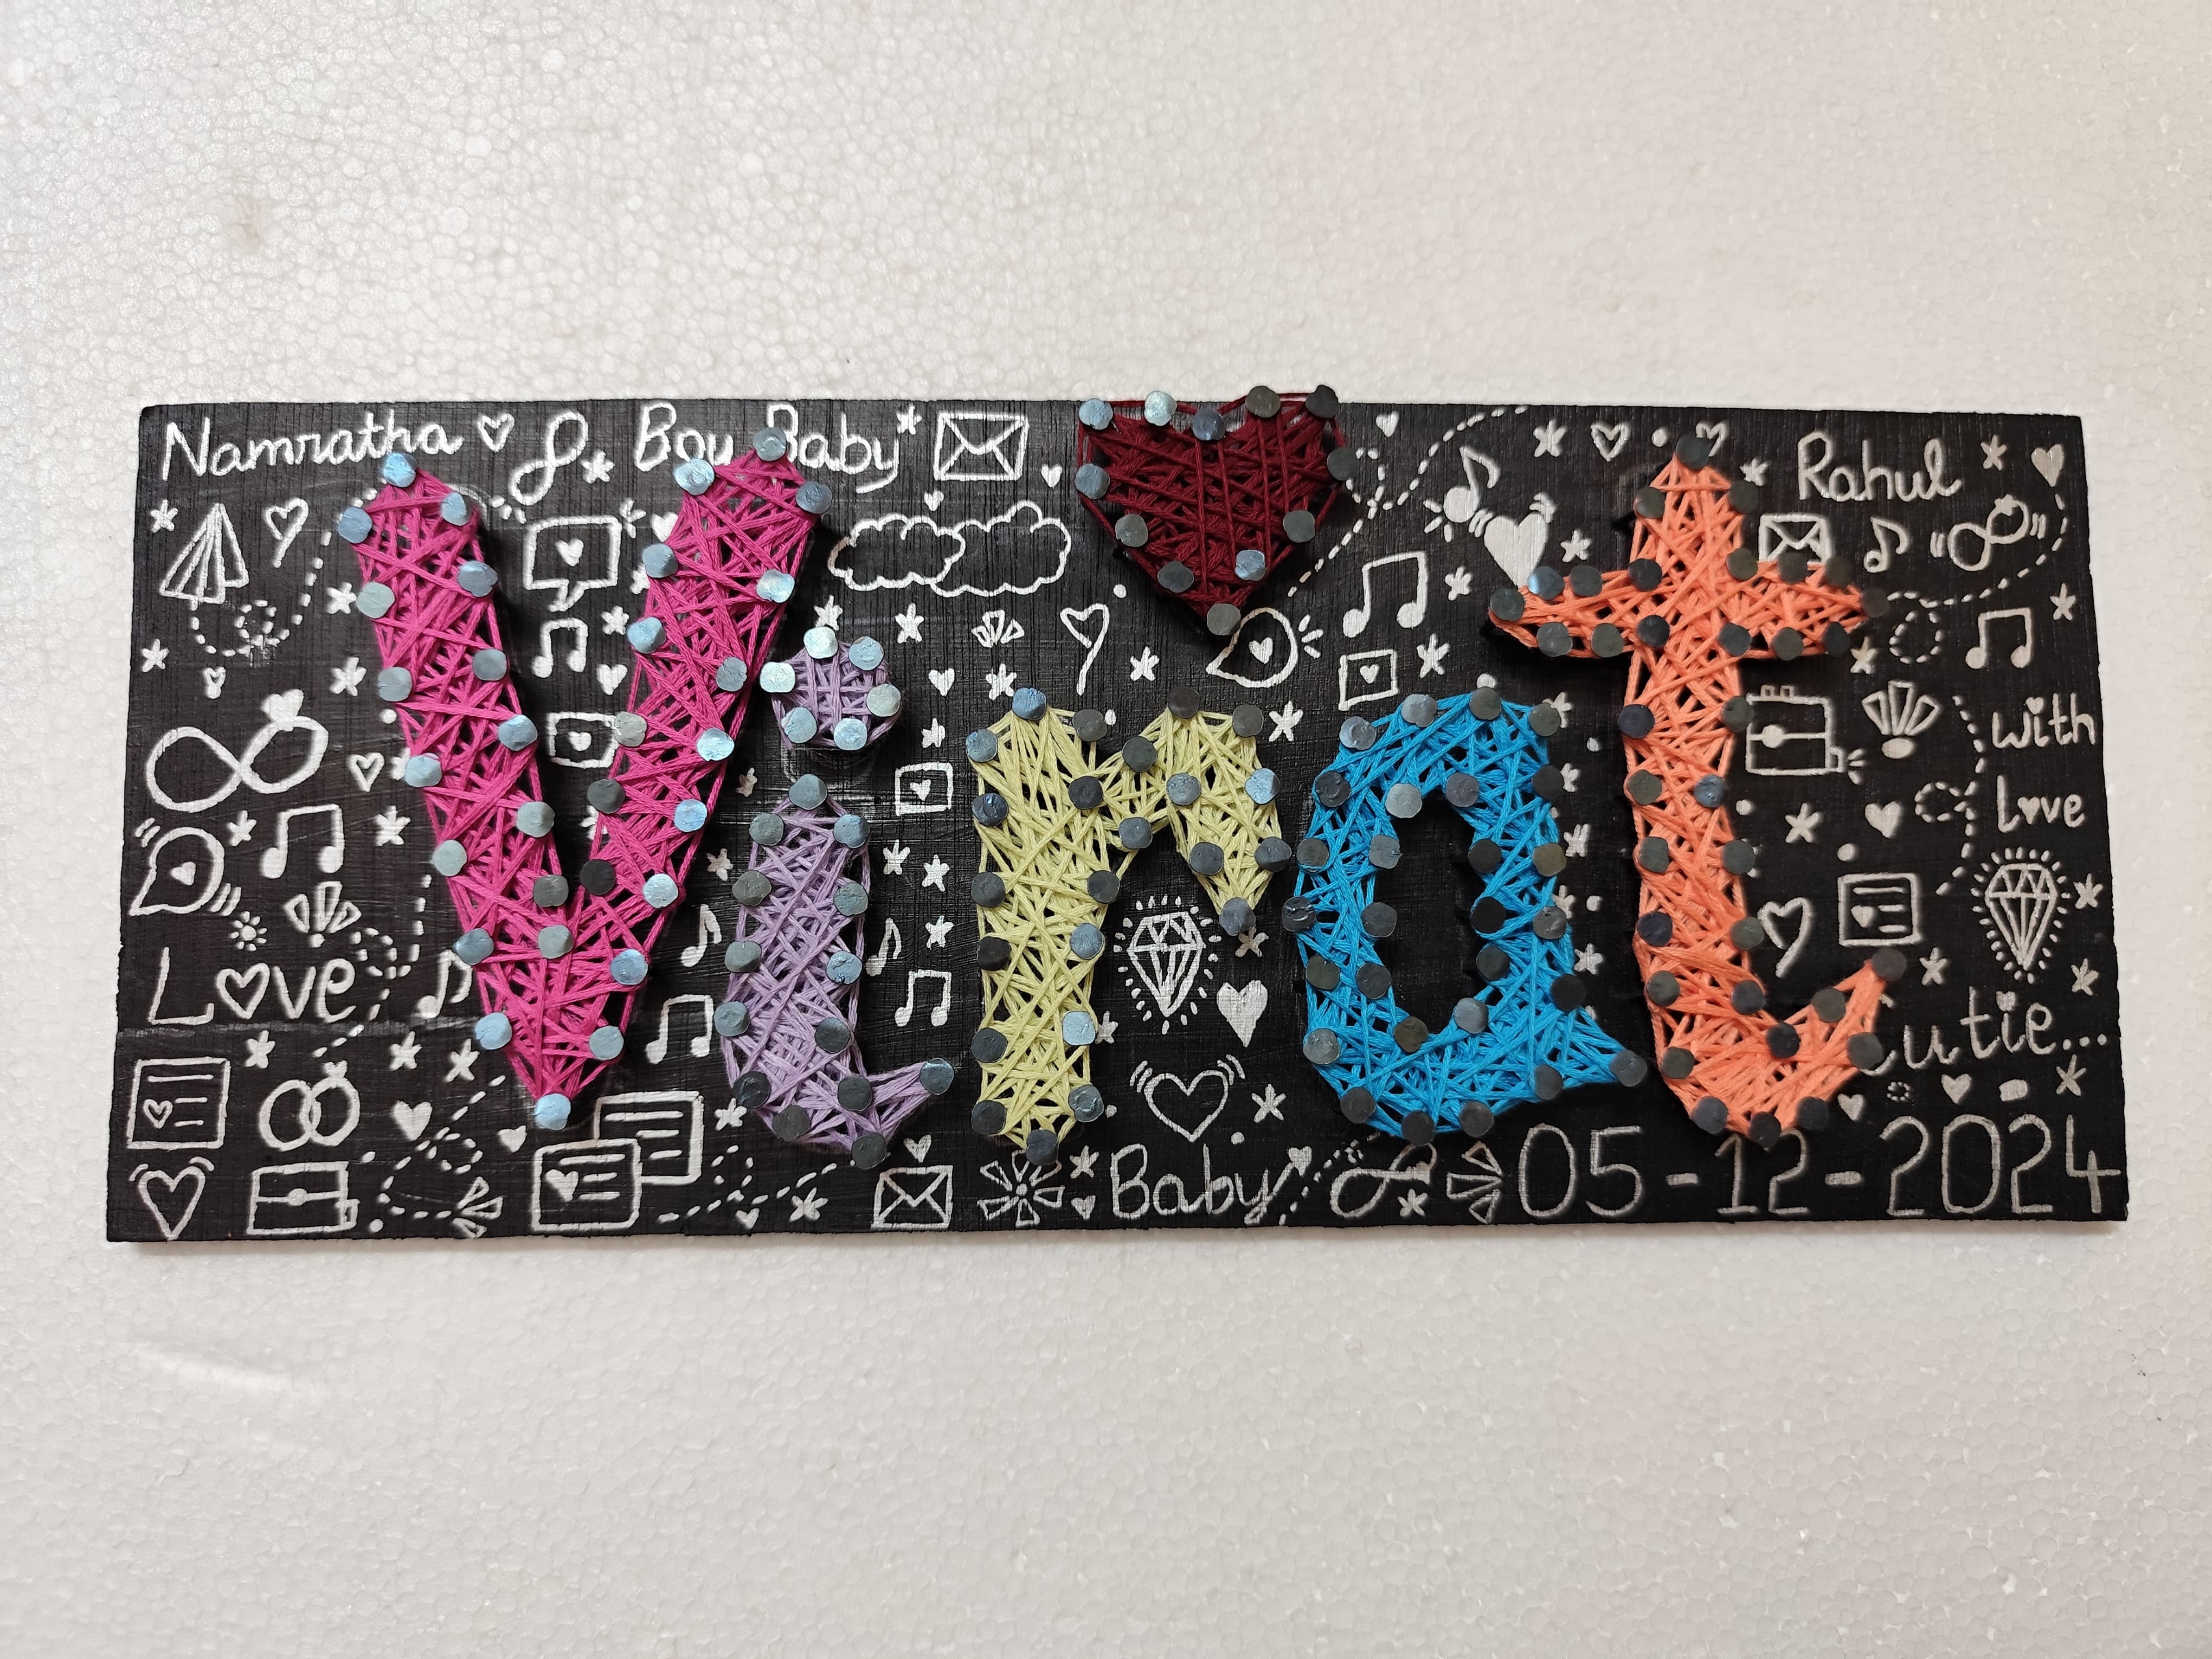 Namratha Boy Baby Rahul
Virat
with
Love
Love
Cutie...
Baby 05-12-2024